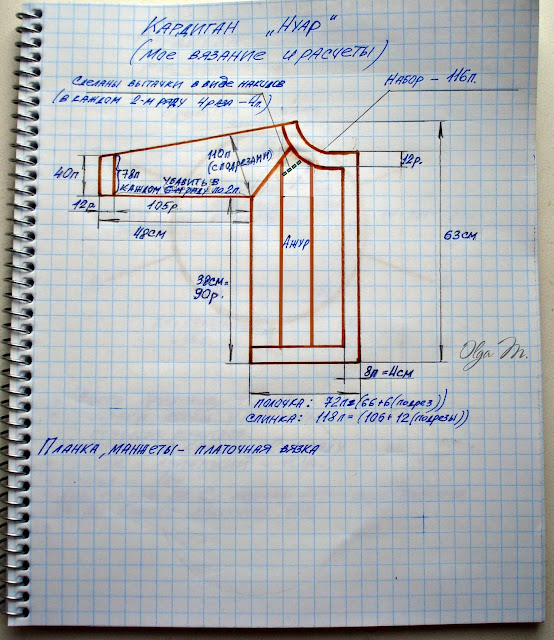 Кардиган „Нуар“
(Мое вязание и расчеты)
Сделаны вытачки в виде накидов
(в каждом 2-м ряду 4 раза – 4п.)
Набор – 116п.
110п
(с подрезами)
12р.
40п
78п
Убавить в
каждом 6-м ряду по 2п.
12р.
105р
48см
Ажур
63см
38см=
90р.
Olga M.
8п = 4см
полочка: 72п=(66+6(подрез))
спинка: 118п=(106+12(подрезы))
Планка, манжеты- платочная вязка